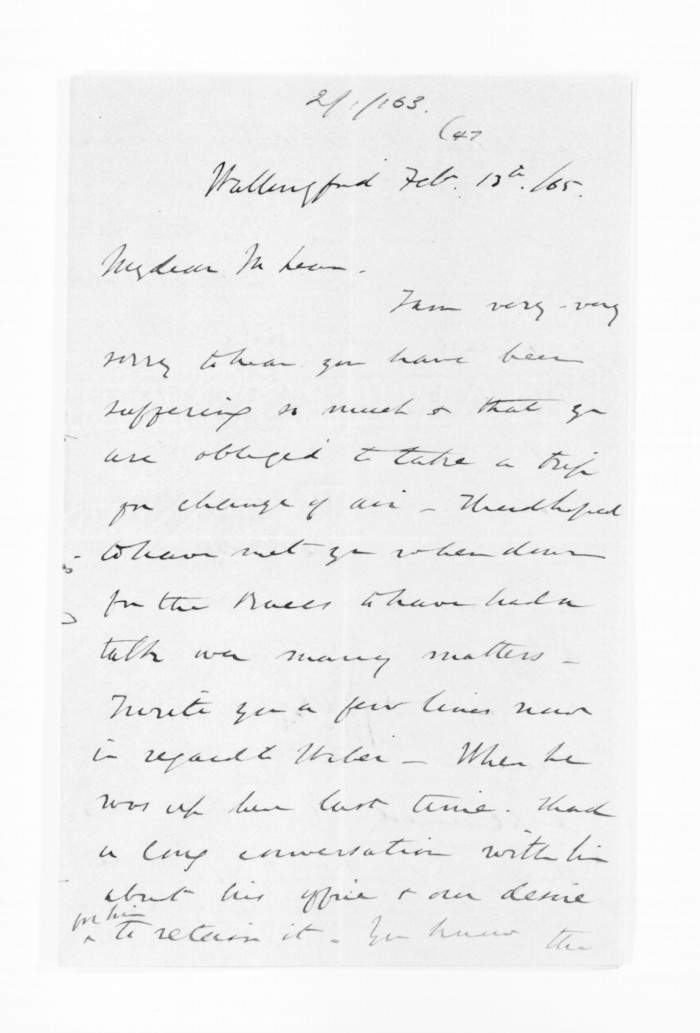 2/1/163.
(47
Wallingford Feb. 13th. /65.
My dear McLean.
I am very - very
sorry to hear you have been
suffering so much & that you
are obliged to take a trip
for change of air - I had hoped
to have met you when down
for the Races to have had a
talk over many matters -
I write you a few lines now
in regard to Weber - When he
was up here last time. I had
a long conversation with him
about his office & our desire
for him
^ to retain it - You know the